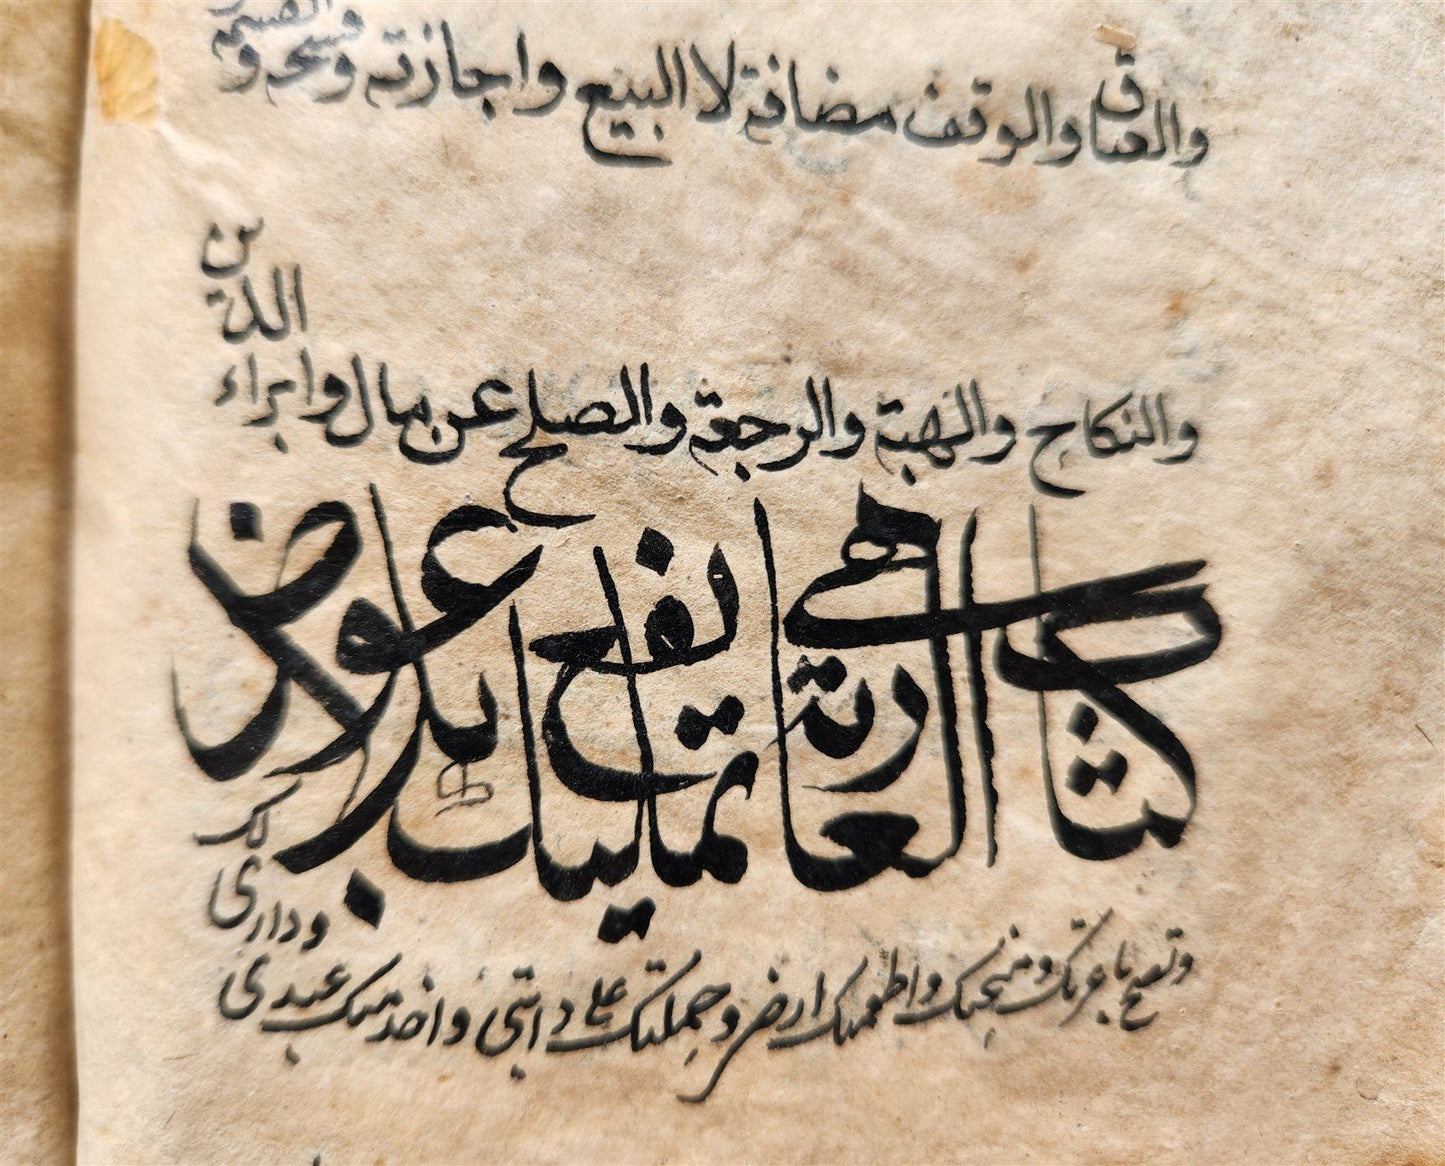 والعتاق والوقف مضافة لا البيع واجازته وفسخه والقسمة و
والنكاح والهبة والرجعة والصلح عن مال وابراء الدين
كتاب العارية هي تمليك نفع بلا عوض
وتصح باعرتك ومنحتك واطعمتك ارضي وحملتك على دابتي واخدمتك عبدي وداري لك